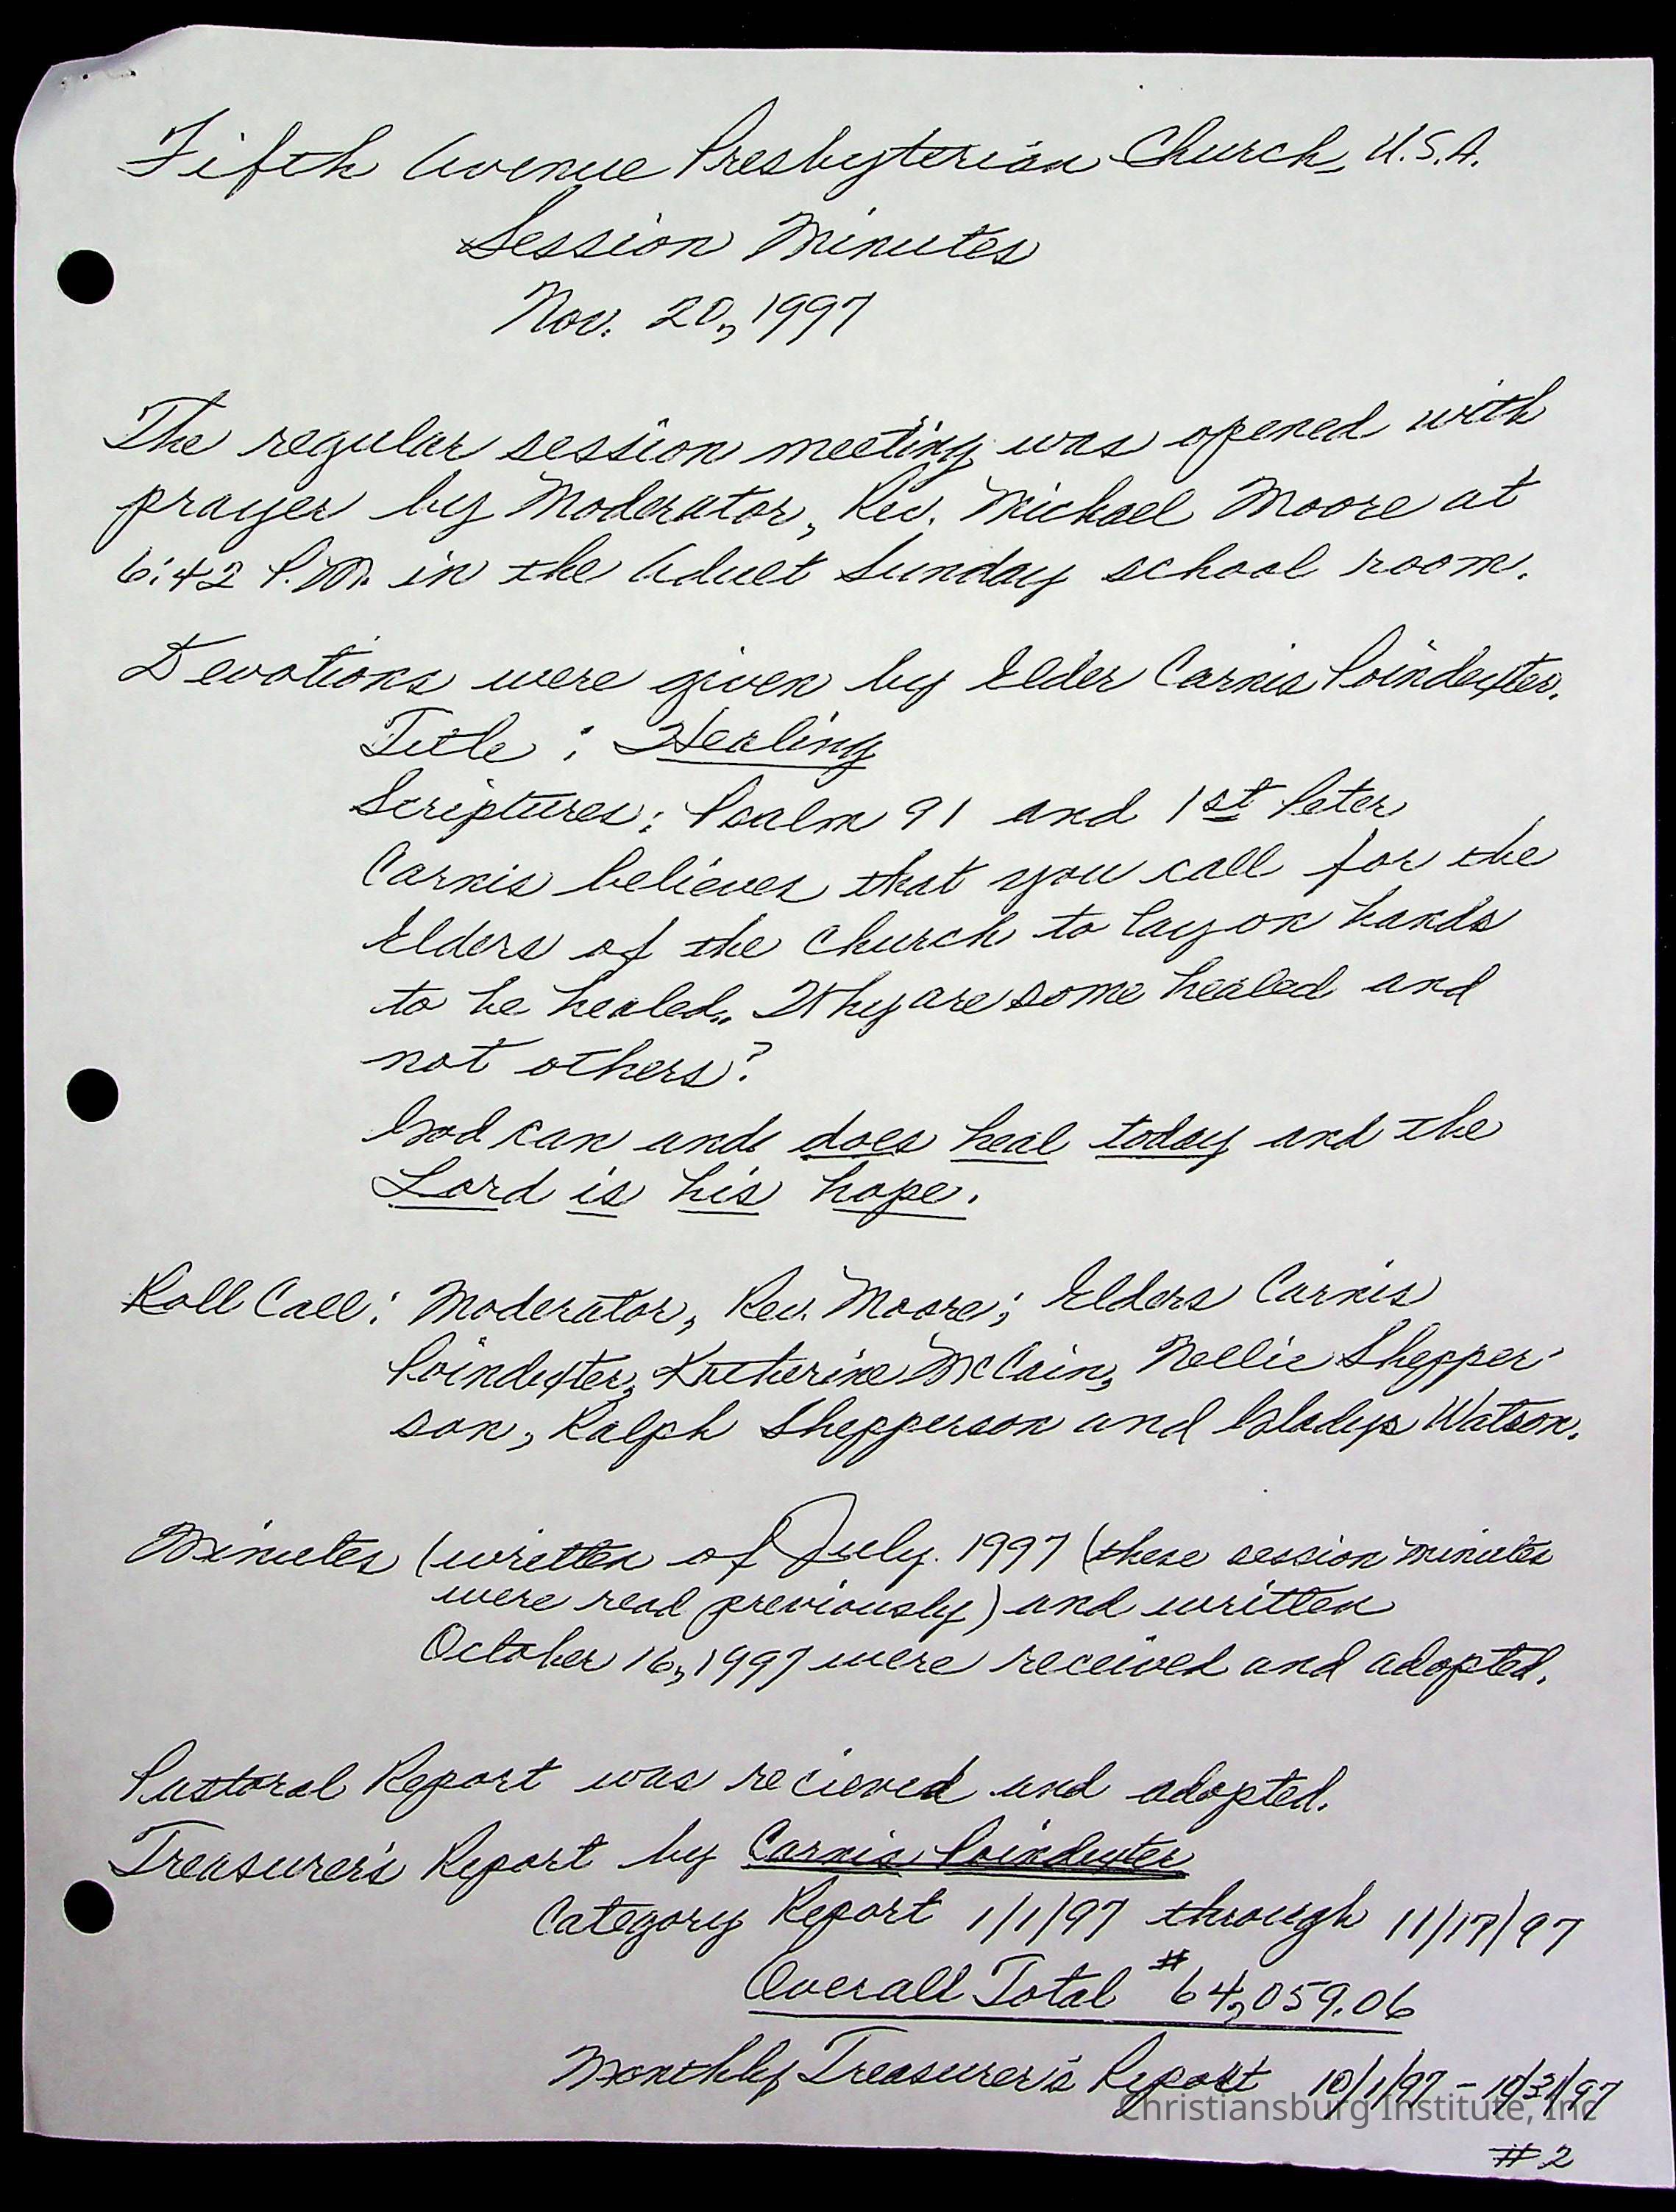 Fifth Avenue Presbyterian Church, U.S.A.
Session Minutes
Nov. 20, 1997
The regular session meeting was opened with
prayer by Moderator, Rev. Michael Moore at
6:42 P.M. in the Adult Sunday school room.
Devotions were given by Elder Carnis Poindexter.
Title : Healing
Scriptures: Psalm 91 and 1st Peter
Carnis believes that you call for the
Elders of the Church to lay on hands
to be healed. Why are some healed and
not others?
God can and does heal today and the
Lord is his hope.
Roll Call: Moderator, Rev. Moore; Elders Carnis
Poindexter, Katherine McCain, Nellie Shepper-
son, Ralph Shepperson and Gladys Watson.
Minutes (written of July 1997 (these session minutes
were read previously) and written
October 16, 1997 were received and adopted.
Pastoral Report was recieved and adopted.
Treasurer's Report by Carnis Poindexter
Category Report 1/1/97 through 11/17/97
Overall Total $64,059.06
Monthly Treasurer's Report 10/1/97 - 10/31/97
Christiansburg Institute, Inc
#2